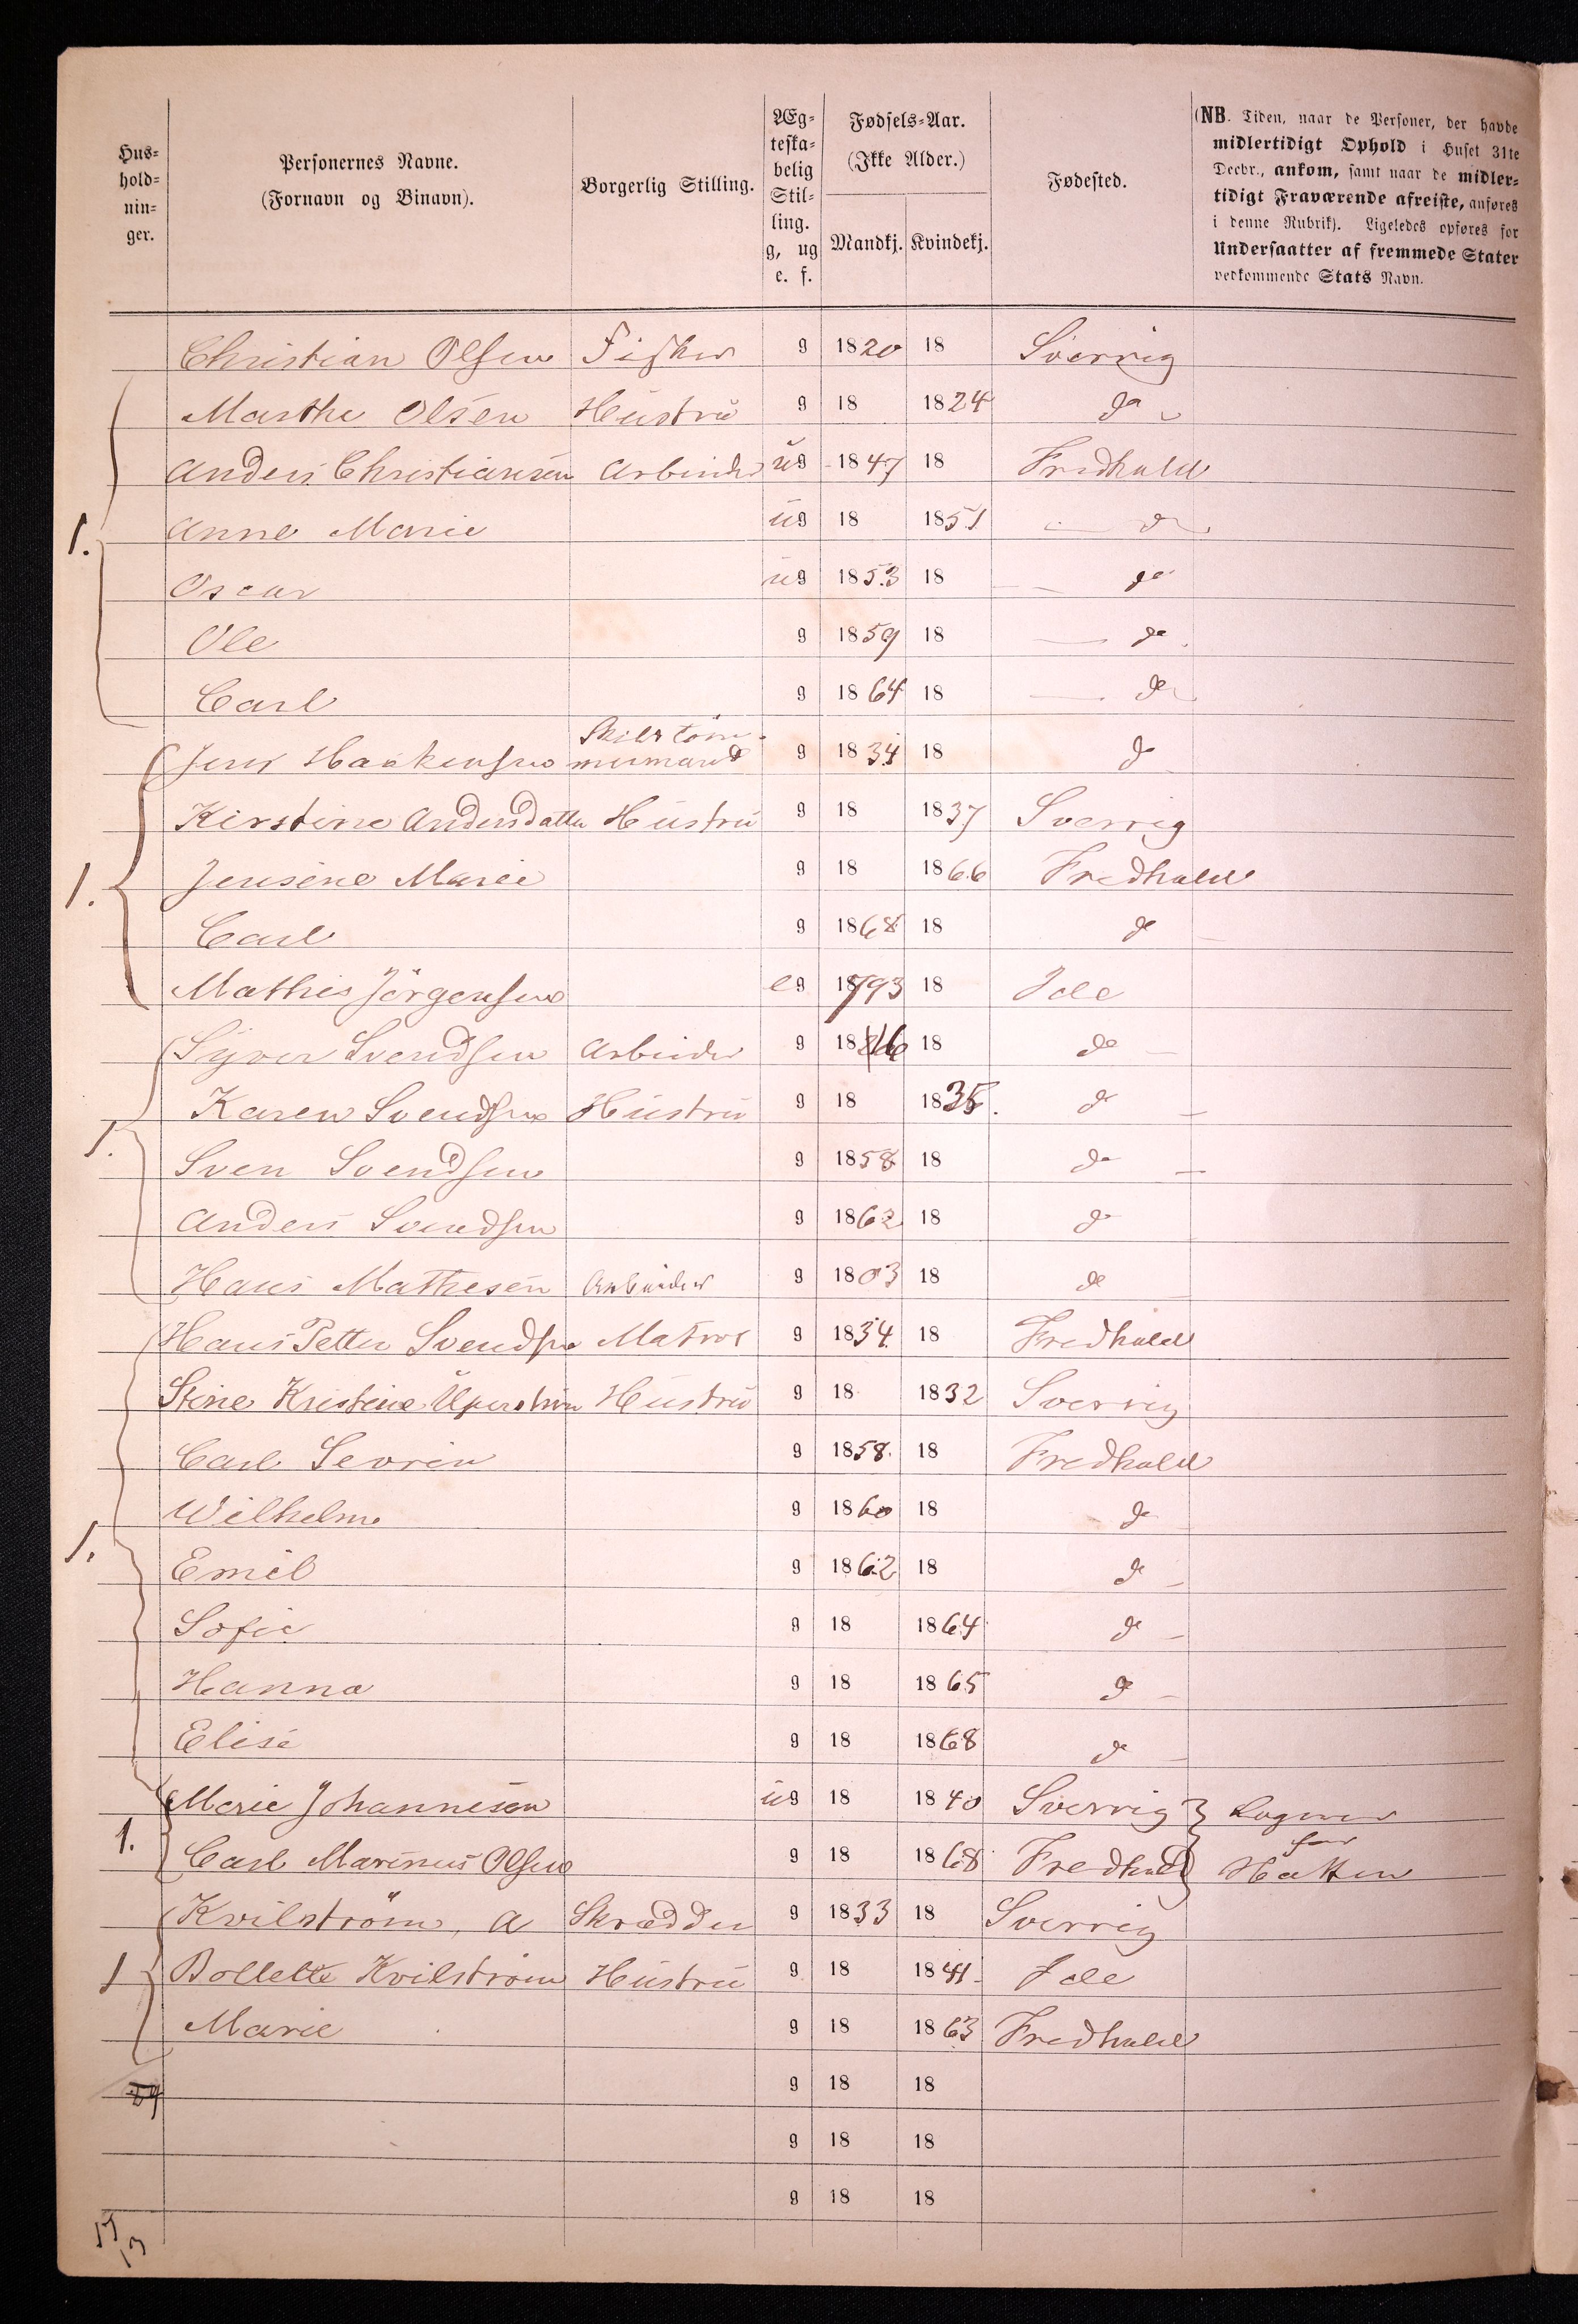 Hus-
hold-
nin-
ger.
Personernes Navne.
(Fornavn og Binavn).
Borgerlig Stilling.
Æg-
teska-
belig
Stil-
ling.
g, ug
e. f.
Fødsels-Aar.
(Ikke Alder.)
Mandkj. Kvindekj.
Fødested.
(NB. Tiden, naar de Personer, der havde
midlertidigt Ophold i Huset 31te
Decbr., ankom, samt naar de midler-
tidigt Fraværende afreiste, anføres
i denne Rubrik). Ligeledes opføres for
Undersaatter af fremmede Stater
vedkommende Stats Navn.
Christian Olsen Fisker g 1820 18 Sverrig
Marthe Olsen Hustru g 18 1824 do
Anders Christiansen Arbeider ug 1847 18 Fredhald
1. Anne Marie ug 18 1851 do
Oscar ug 1853 18 do
Ole g 1859 18 do
Carl g 1864 18 do
Jens Haakensen Skibstøm-
mermand g 1834 18 do
Kirstine Andersdatter Hustru g 18 1837 Sverrig
1. Jensine Marie g 18 1866 Fredhald
Carl g 1868 18 do
Mathis Jörgensen eg 1793 18 Ide
Syver Svendsen Arbeider g 18 18 do
Karen Svendsen Hustru g 18 1835. do
1. Sven Svendsen g 1858 18 do
Anders Svendsen g 1862 18 do
Hans Mathesen Arbeider g 1803 18 do
Hans Petter Svendsen Matros g 1834 18 Fredhald
Stine Kristine Hustru g 18 1832 Sverrig
Carl Sevrin g 1858 18 Fredhald
Wilhelm g 1860 18 do
1. Emil g 1862 18 do
Sofie g 18 1864 do
Hanna g 18 1865 do
Elise g 18 1868 do
Marie Johannesen ug 18 1840 Sverrig Logerer
1. Carl Marinus Olsen g 18 1868 Fredhald for
Natten
Kvilström, A Skrædder g 1833 18 Sverrig
1 Bollette Kvilström Hustru g 18 1841 Ide
Marie g 18 1863 Fredhald
g 18 18
g 18 18
g 18 18
13